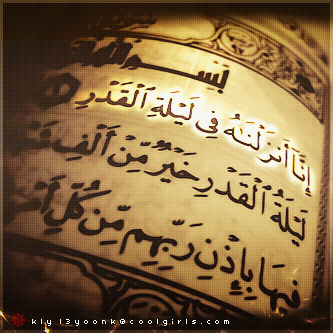 بِسْمِ اللَّهِ
إِنَّا أَنزَلْنَٰهُ فِى لَيْلَةِ ٱلْقَدْرِ
لَيْلَةُ ٱلْقَدْرِ خَيْرٌ مِّنْ أَلْفِ
فِيهَا بِإِذْنِ رَبِّهِم مِّن كُلِّ
kly13yoonk@coolgirls.com